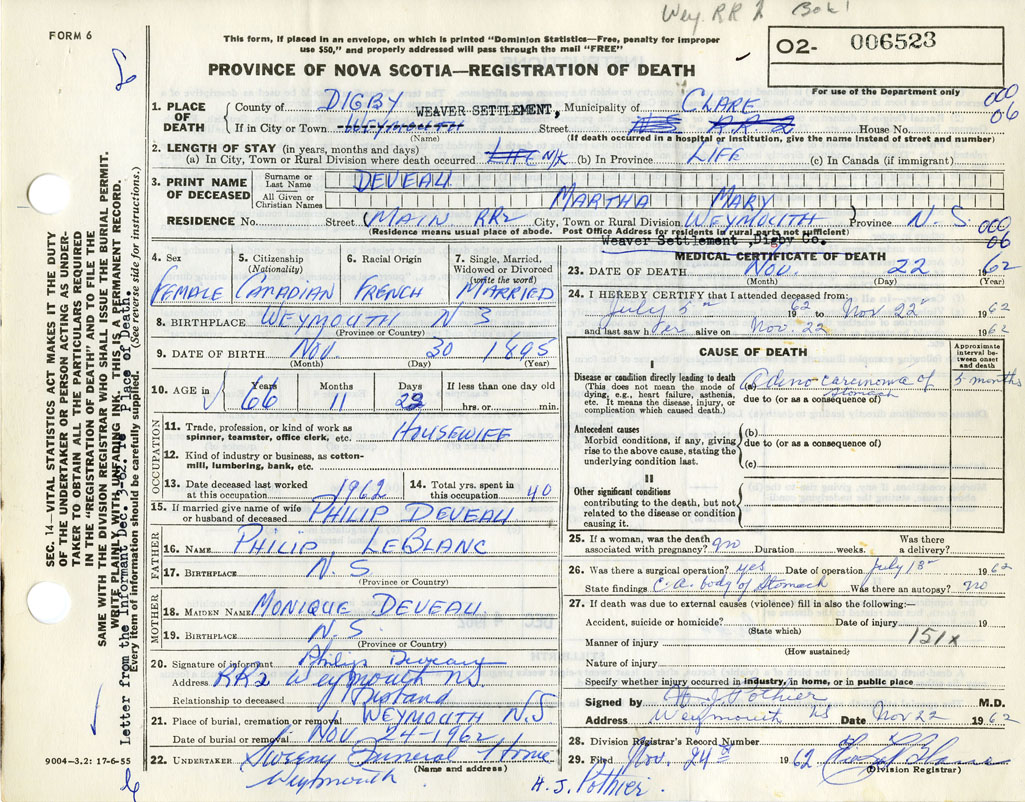 Wey. RR 2 Bok!
FORM 6
This form, if placed in an envelope, on which is printed "Dominion Statistics—Free, penalty for improper
use $50," and properly addressed will pass through the mail "FREE"
O2- 006523
PROVINCE OF NOVA SCOTIA—REGISTRATION OF DEATH
For use of the Department only
000
06
1. PLACE OF DEATH { County of DIGBY WEAVER SETTLEMENT, Municipality of CLARE
If in City or Town WEYMOUTH Street NS RR 2 House No.
(Name) (If death occurred in a hospital or institution, give the name instead of street and number)
2. LENGTH OF STAY (in years, months and days)
(a) In City, Town or Rural Division where death occurred LIFE N/K (b) In Province LIFE (c) In Canada (if immigrant)
3. PRINT NAME OF DECEASED { Surname or Last Name DEVEAU
All Given or Christian Names MARTHA MARY
RESIDENCE No. Street MAIN RR2 City, Town or Rural Division WEYMOUTH Province N.S.
(Residence means usual place of abode. Post Office Address for residents in rural parts not sufficient)
000
06
Weaver Settlement, Digby Co.
4. Sex FEMALE
5. Citizenship (Nationality) CANADIAN
6. Racial Origin FRENCH
7. Single, Married, Widowed or Divorced (write the word) MARRIED
8. BIRTHPLACE WEYMOUTH N S
(Province or Country)
9. DATE OF BIRTH Nov. 30 1895
(Month) (Day) (Year)
10. AGE in Years 66 Months 11 Days 23 If less than one day old hrs. or min.
OCCUPATION
11. Trade, profession, or kind of work as spinner, teamster, office clerk, etc. HOUSEWIFE
12. Kind of industry or business, as cotton-mill, lumbering, bank, etc.
13. Date deceased last worked at this occupation 1962
14. Total yrs. spent in this occupation 40
15. If married give name of wife or husband of deceased PHILIP DEVEAU
FATHER
16. NAME PHILIP LEBLANC
17. BIRTHPLACE N.S.
(Province or Country)
MOTHER
18. MAIDEN NAME MONIQUE DEVEAU
19. BIRTHPLACE N.S.
(Province or Country)
20. Signature of informant Philip Deveau
Address RR2 Weymouth NS
Relationship to deceased Husband
21. Place of burial, cremation or removal WEYMOUTH N.S
Date of burial or removal NOV 24-1962
22. UNDERTAKER Sweeny Funeral Home
(Name and address)
Weymouth
MEDICAL CERTIFICATE OF DEATH
23. DATE OF DEATH Nov. 22 1962
(Month) (Day) (Year)
24. I HEREBY CERTIFY that I attended deceased from:
July 5th 1962 to Nov 22nd 1962
and last saw her alive on Nov. 22 1962
CAUSE OF DEATH
Approximate interval between onset and death
I
Disease or condition directly leading to death
(This does not mean the mode of dying, e.g., heart failure, asthenia, etc. It means the disease, injury, or complication which caused death.)
(a) Adino carcinoma of stomach 5 months
due to (or as a consequence of)
Antecedent causes
Morbid conditions, if any, giving rise to the above cause, stating the underlying condition last.
(b)
due to (or as a consequence of)
(c)
II
Other significant conditions
contributing to the death, but not related to the disease or condition causing it.
25. If a woman, was the death associated with pregnancy? no Duration weeks. Was there a delivery?
26. Was there a surgical operation? yes Date of operation July 13th 1962
State findings C.A. body of Stomach Was there an autopsy? no
27. If death was due to external causes (violence) fill in also the following:—
Accident, suicide or homicide? Date of injury 19
(State which)
Manner of injury 151x
(How sustained)
Nature of injury
Specify whether injury occurred in industry, in home, or in public place
Signed by H. J. Pothier M.D.
Address Weymouth NS Date Nov 22 1962
28. Division Registrar's Record Number
29. Filed Nov. 24th 1962
(Division Registrar)
H. J. Pothier.
SEC. 14—VITAL STATISTICS ACT MAKES IT THE DUTY
OF THE UNDERTAKER OR PERSON ACTING AS UNDER-
TAKER TO OBTAIN ALL THE PARTICULARS REQUIRED
IN THE "REGISTRATION OF DEATH" AND TO FILE THE
SAME WITH THE DIVISION REGISTRAR WHO SHALL ISSUE THE BURIAL PERMIT.
WRITE PLAINLY WITH UNFADING INK. THIS IS A PERMANENT RECORD.
Every item of information should be carefully supplied. (See reverse side for instructions.)
Letter from the informant Dec. 3-62. re Place of Death.
9004—3.2: 17-6-55